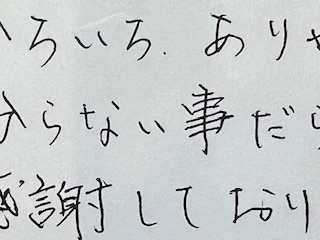 いろいろ、あり
分らない事だら
感謝しており